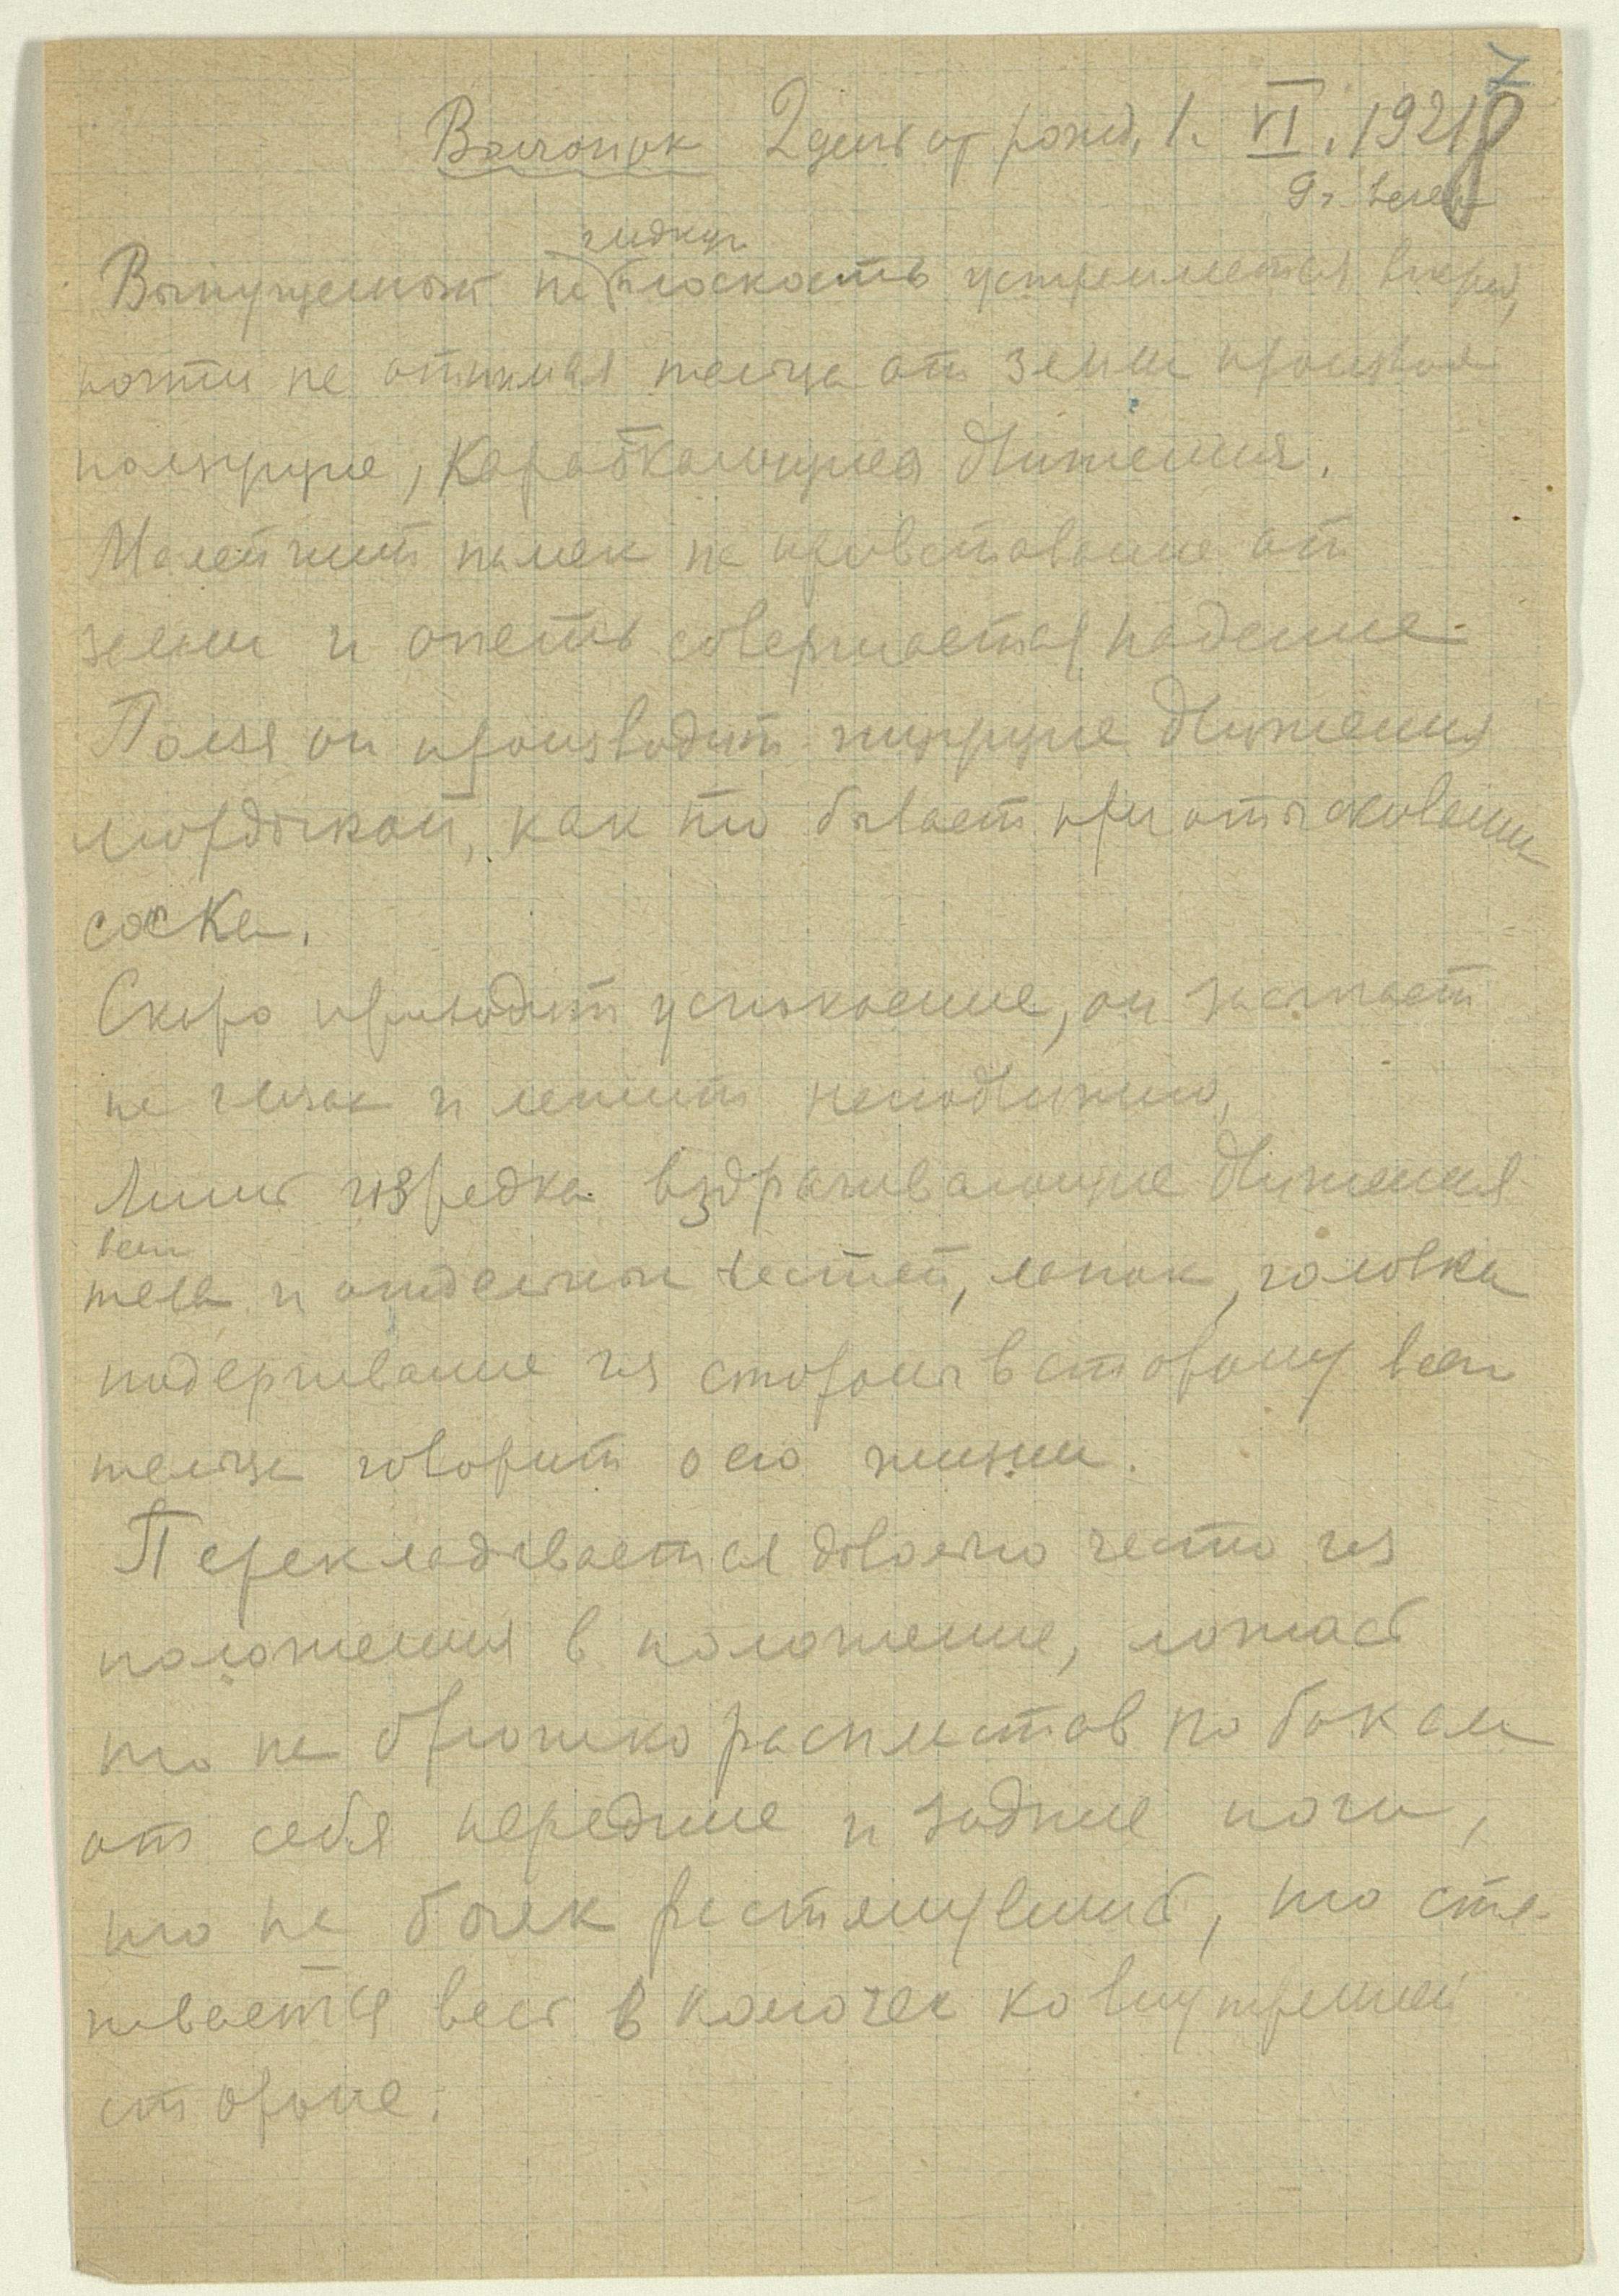 7
Волчонок 2 день от рожд. 1. VI. 1921
8
9 ч. вечер
гладкую
Выпущенный на плоскость устремляется вперед,
почти не отнимая тельца от земли производя
ползущие, карабкающиеся движения.
Малейший намек на привставание от
земли и опять совершается падение
Ползя он производит ищущие движения
мордочкой, как то бывает при отыскивании
соска.
Скоро приходит успокоение, он засыпает
на глазах и лежит неподвижно,
лишь изредка вздрагивающие движения
всего
тела и отдельных частей, лапок, головки
подергивание из стороны в сторону всего
тельца говорит о его жизни.
Перекладывается довольно часто из
положения в положение, ложась
то на брюшко распластав по бокам
от себя передние и задние ноги,
то на бочек растянувшись, то стя-
гивается весь в комочек ко внутренней
стороне.